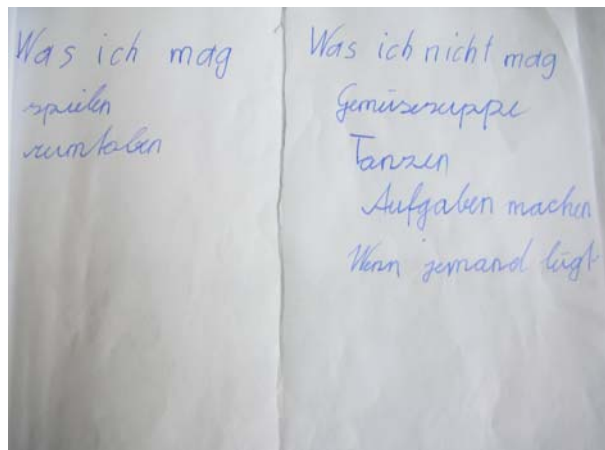 Was ich mag
spielen
rumtoben
Was ich nicht mag
Gemüsesuppe
Tanzen
Aufgaben machen
Wenn jemand lügt